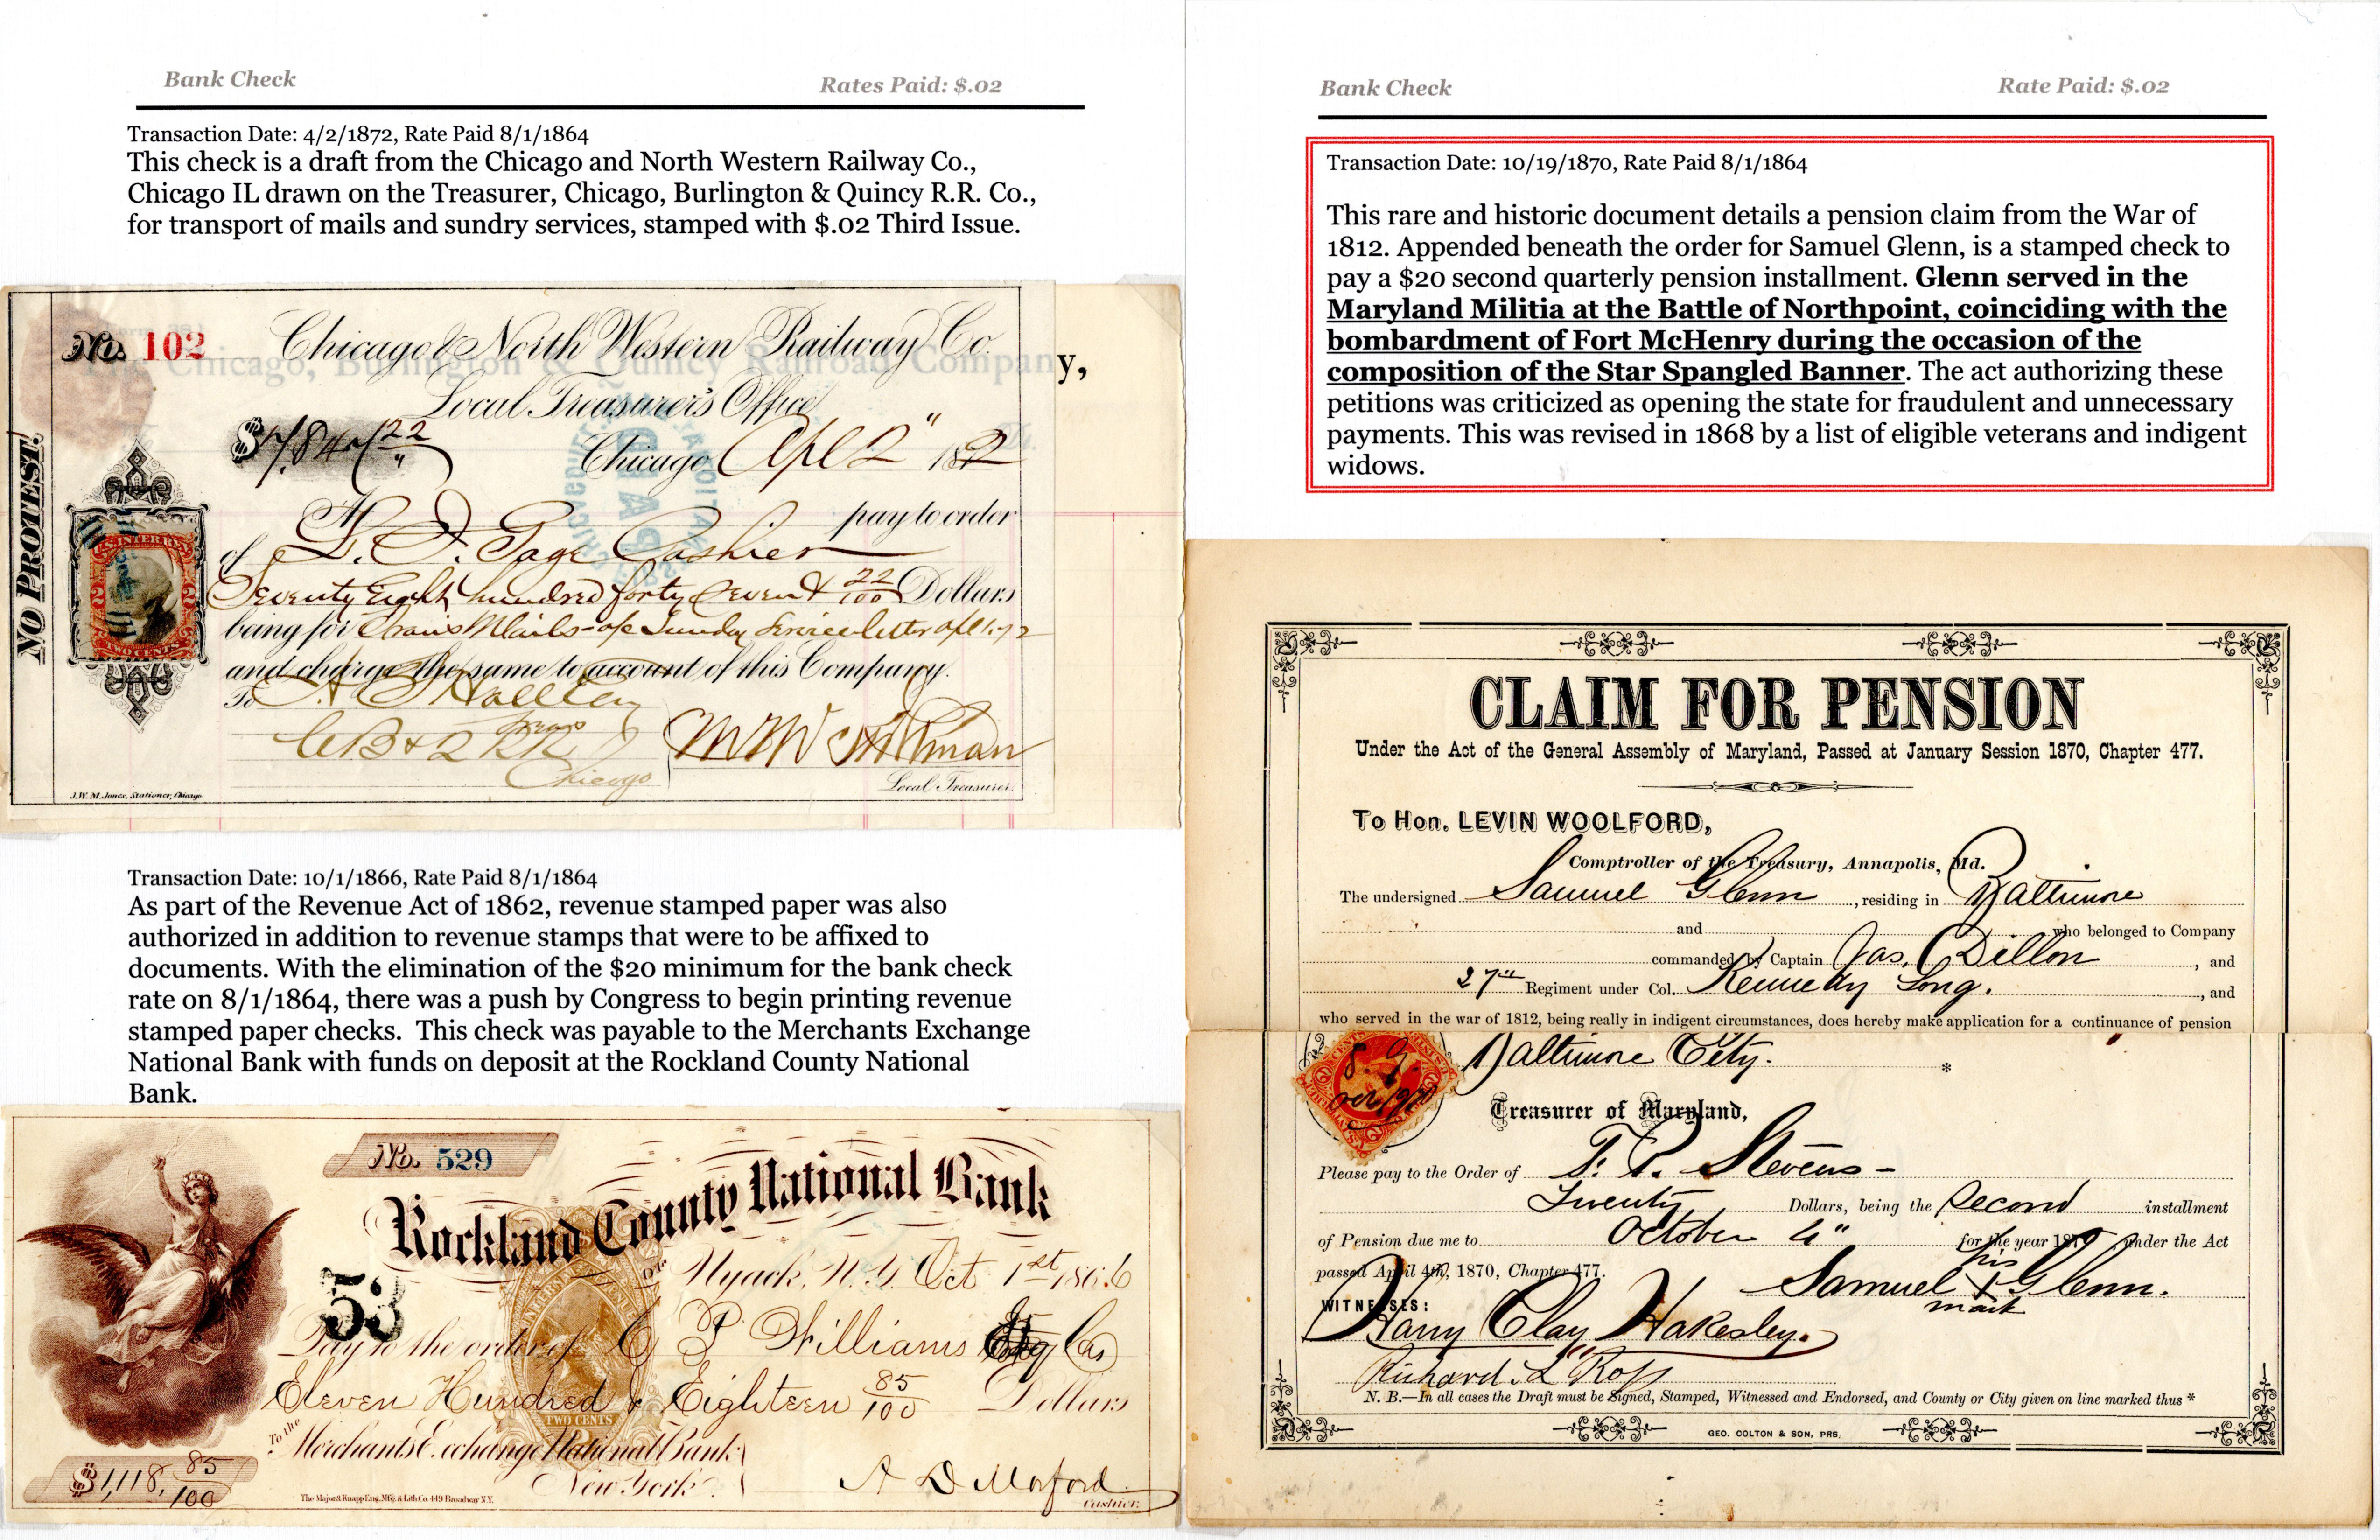 Bank Check
Rates Paid: $.02
Transaction Date: 4/2/1872, Rate Paid 8/1/1864
This check is a draft from the Chicago and North Western Railway Co.,
Chicago IL drawn on the Treasurer, Chicago, Burlington & Quincy R.R. Co.,
for transport of mails and sundry services, stamped with $.02 Third Issue.
No. 102
Chicago & North Western Railway Co.
The Chicago, Burlington & Quincy Railroad Company,
Local Treasurer's Office
$7,847 22
Chicago Apl 2" 1872
NO PROTEST.
At pay to order
of L. J. Gage Cashier
Seventy Eight hundred forty seven & 22/100 Dollars
being for Trans Mails
and charge the same to account of this Company.
U.S. INTER. REV.
TWO CENTS
To
C B & Q RR
Chicago
Local Treasurer.
J.W.M. Jones, Stationer, Chicago
Transaction Date: 10/1/1866, Rate Paid 8/1/1864
As part of the Revenue Act of 1862, revenue stamped paper was also
authorized in addition to revenue stamps that were to be affixed to
documents. With the elimination of the $20 minimum for the bank check
rate on 8/1/1864, there was a push by Congress to begin printing revenue
stamped paper checks. This check was payable to the Merchants Exchange
National Bank with funds on deposit at the Rockland County National
Bank.
No. 529
Rockland County National Bank
OF
Nyack, N.Y. Oct 1st 1866
53
Pay to the order of C P Williams
Eleven Hundred & Eighteen 85/100 Dollars
TWO CENTS
To the
Merchants Exchange National Bank
New York.
$1,118, 85/100
A D Morford
Cashier.
The Major & Knapp Eng. Mfg. & Lith Co. 449 Broadway N.Y.
Bank Check
Rate Paid: $.02
Transaction Date: 10/19/1870, Rate Paid 8/1/1864
This rare and historic document details a pension claim from the War of
1812. Appended beneath the order for Samuel Glenn, is a stamped check to
pay a $20 second quarterly pension installment. Glenn served in the
Maryland Militia at the Battle of Northpoint, coinciding with the
bombardment of Fort McHenry during the occasion of the
composition of the Star Spangled Banner. The act authorizing these
petitions was criticized as opening the state for fraudulent and unnecessary
payments. This was revised in 1868 by a list of eligible veterans and indigent
widows.
CLAIM FOR PENSION
Under the Act of the General Assembly of Maryland, Passed at January Session 1870, Chapter 477.
To Hon. LEVIN WOOLFORD,
Comptroller of the Treasury, Annapolis, Md.
The undersigned Samuel Glenn, residing in Baltimore
and who belonged to Company
commanded by Captain Jas. Dillon, and
27th Regiment under Col. Kennedy Long., and
who served in the war of 1812, being really in indigent circumstances, does hereby make application for a continuance of pension
Baltimore City.
*
Treasurer of Maryland,
Please pay to the Order of T. P. Stevens
Twenty Dollars, being the Second installment
of Pension due me to October 4" for the year 1870 under the Act
passed April 4th, 1870, Chapter 477.
his
Samuel X Glenn.
mark
WITNESSES:
Harry Clay Wakesley.
Richard L Ross
N. B.—In all cases the Draft must be Signed, Stamped, Witnessed and Endorsed, and County or City given on line marked thus *
GEO. COLTON & SON, PRS.